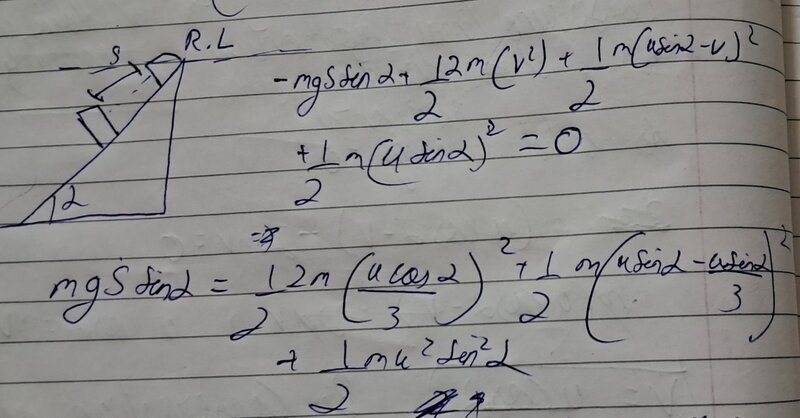 S R.L
-mgS sin α + 1/2 2m(v²) + 1/2 m(u sin α - v)²
+ 1/2 m(u sin α)² = 0
α
mgS sin α = 1/2 2m (u cos α / 3)² + 1/2 m (u sin α - u sin α / 3)²
+ 1/2 mu² sin² α